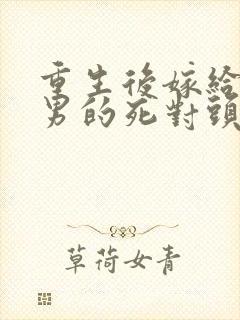 重生後嫁給
男的死對頭
草荷女青